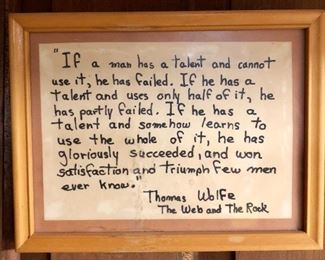 "If a man has a talent and cannot
use it, he has failed. If he has a
talent and uses only half of it, he
has partly failed. If he has a
talent and somehow learns to
use the whole of it, he has
gloriously succeeded, and won
satisfaction and triumph few men
ever know."
Thomas Wolfe
The Web and The Rock